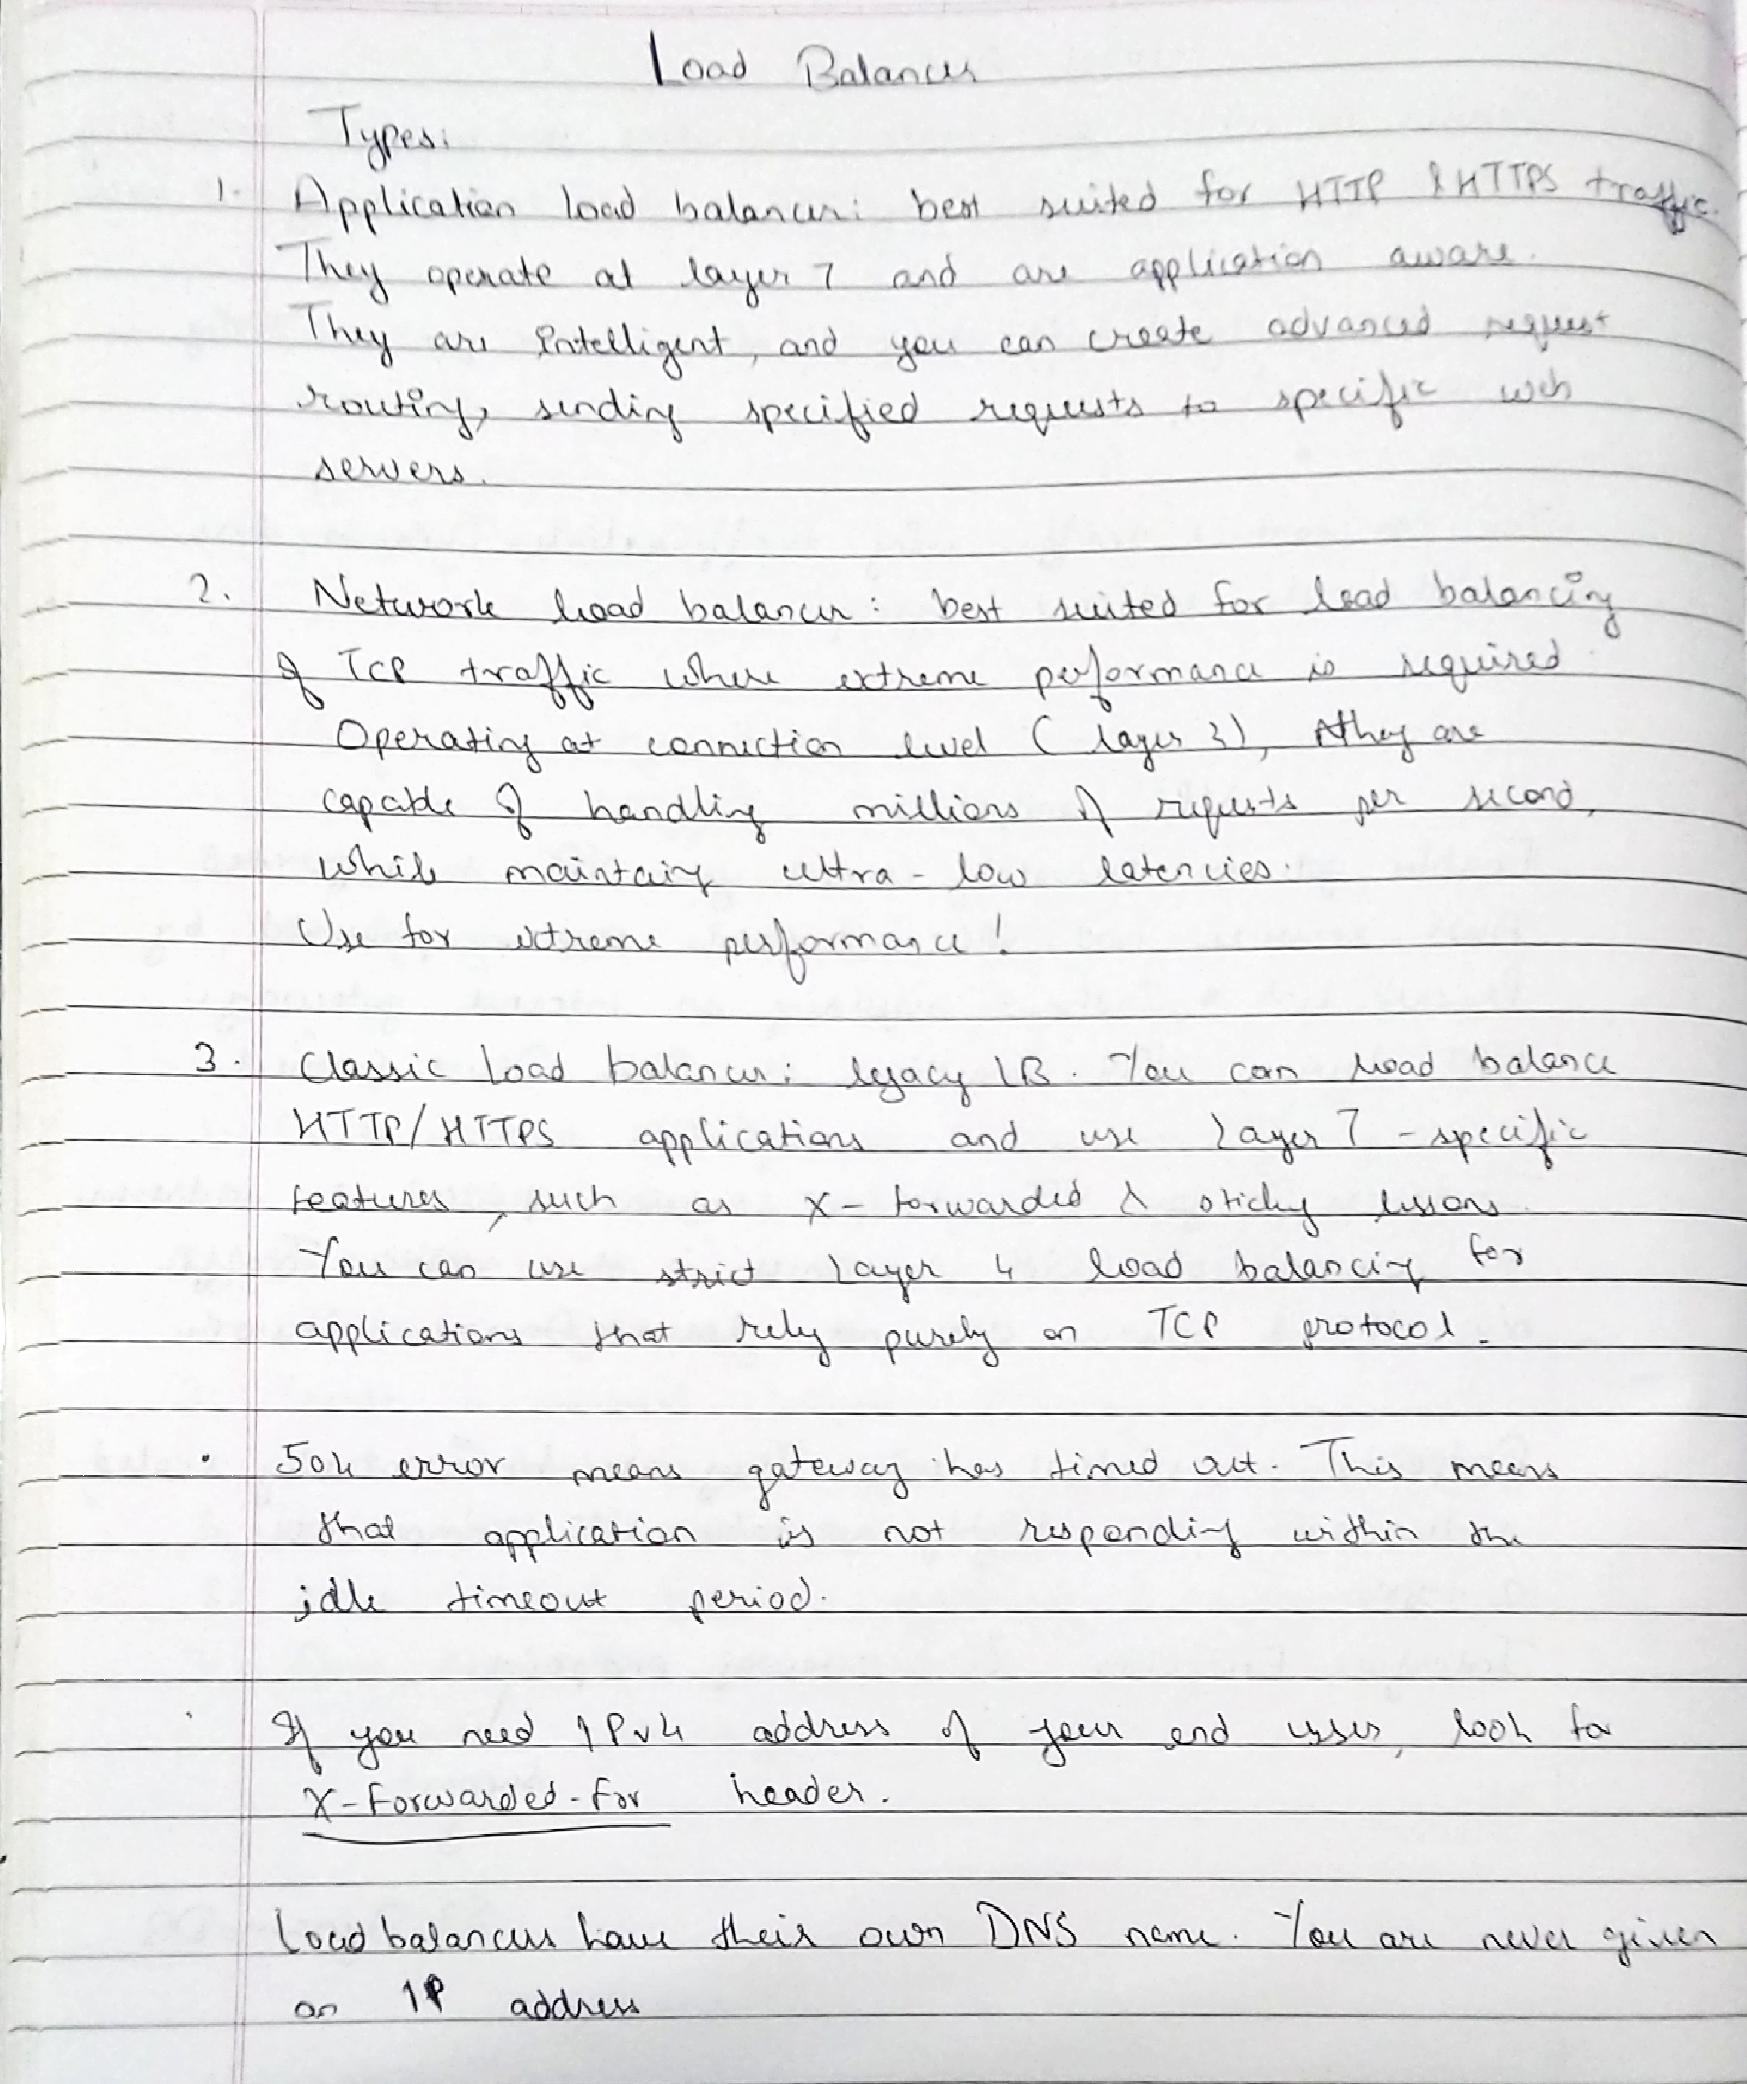 Load Balancers
Types:
1. Application load balancer: best suited for HTTP & HTTPS traffic.
They operate at layer 7 and are application aware.
They are intelligent, and you can create advanced request
routing, sending specified requests to specific web
servers.
2. Network load balancer: best suited for load balancing
of TCP traffic where extreme performance is required.
Operating at connection level (layer 3), they are
capable of handling millions of requests per second,
while maintaing ultra-low latencies.
Use for extreme performance!
3. Classic Load balancer: legacy LB. You can load balance
HTTP/HTTPS applications and use Layer 7 - specific
features, such as X-forwarded & sticky
You can use strict Layer 4 load balancing for
applications that rely purely on TCP protocol.
• 504 error means gateway has timed out. This means
that application is not responding within the
idle timeout period.
• If you need IPv4 address of your end user, look for
X-Forwarded-For header.
Load balancers have their own DNS name. You are never given
an IP address